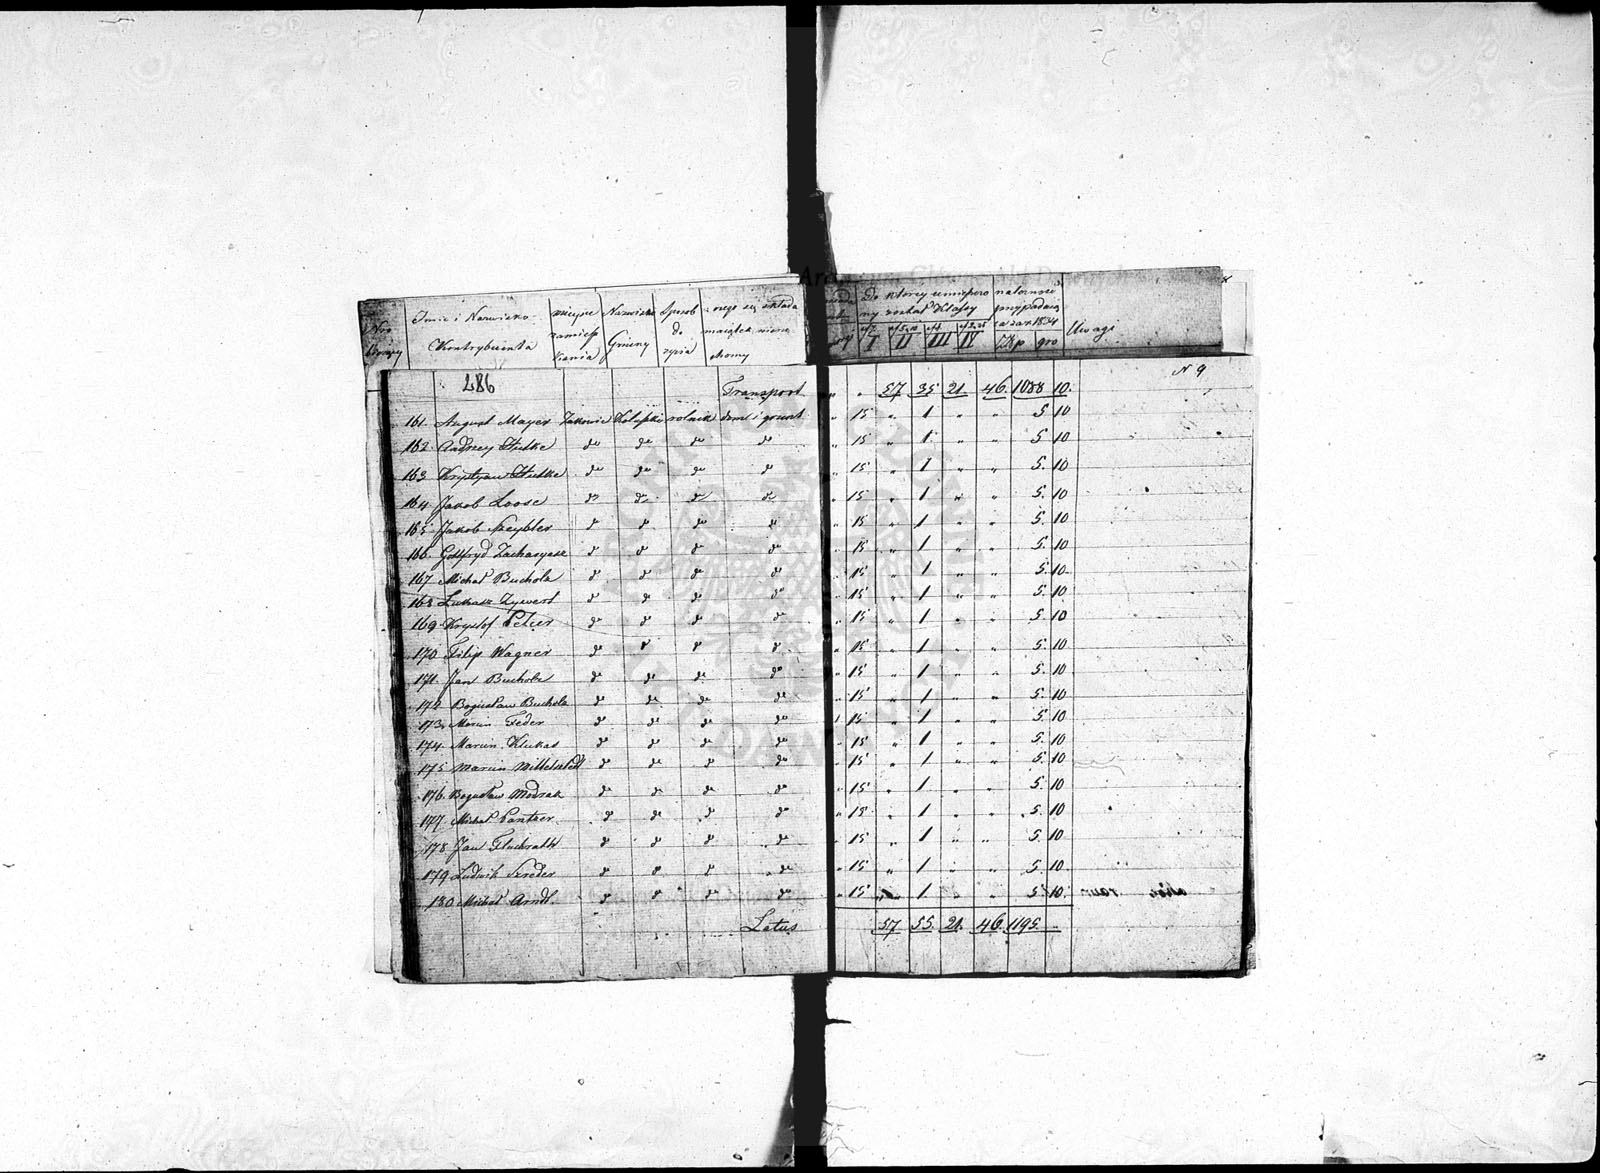 Imie i Nazwisko
Kontrybuenta
mieysce zamiesz kania
Nazwisko Gminy
Sposob do życia
z czego się składa maiątek nieruchomy
Do ktorey umiesczony został Klassy
I II III IV
należność przypadaiąca za rok 1834
Złp gro
Uwagi
286 Transport " " 57 35 21 46 1088 10 N 9
161 August Mayer Zakowice Koluszki rolnik dom i grunt " 15 " 1 " " 5 10
162 Andrzey Hutke do do do do " 15 " 1 " " 5 10
163 Krystyan Hutke do do do do " 15 " 1 " " 5 10
164 Jakob Loose do do do do " 15 " 1 " " 5 10
165 Jakob do do do do " 15 " 1 " " 5 10
166 Gottfryd Zacharyasz do do do do " 15 " 1 " " 5 10
167 Michał Bucholz do do do do " 15 " 1 " " 5 10
168 Łukasz Zywert do do do do " 15 " 1 " " 5 10
169 Krystof do do do do " 15 " 1 " " 5 10
170 Filip Wagner do do do do " 15 " 1 " " 5 10
171 Jan Bucholz do do do do " 15 " 1 " " 5 10
172 Bogusław Bucholz do do do do " 15 " 1 " " 5 10
173 Marcin Feder do do do do " 15 " 1 " " 5 10
174 Marcin Klukas do do do do " 15 " 1 " " 5 10
175 Marcin Mittelstedt do do do do " 15 " 1 " " 5 10
176 Bogusław Modrak do do do do " 15 " 1 " " 5 10
177 Michał Pantzer do do do do " 15 " 1 " " 5 10
178 Jan do do do do " 15 " 1 " " 5 10
179 Ludwik Szreder do do do do " 15 " 1 " " 5 10
180 Michał Arndt do do do do " 15 " 1 " " 5 10
Latus 57 55 21 46 1195 "